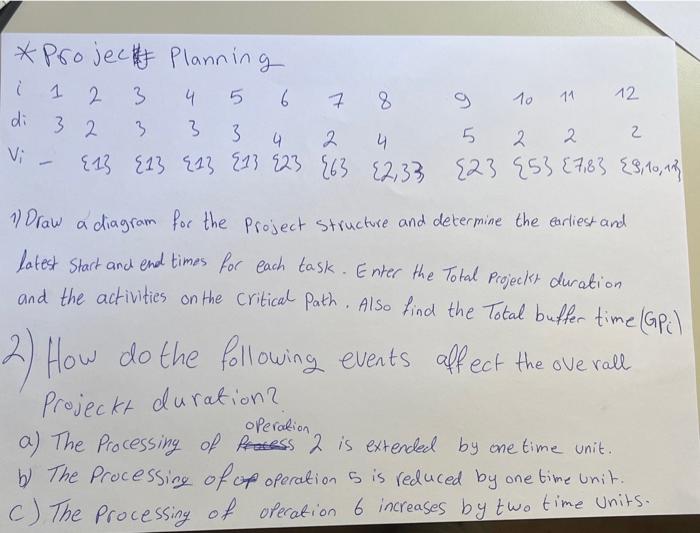 * Project Planning
i 1 2 3 4 5 6 7 8 9 10 11 12
di: 3 2 3 3 3 4 2 4 5 2 2 2
Vi - {1} {1} {1} {1} {2} {6} {2,3} {2} {5} {7,8} {9,10,11}
1) Draw a diagram for the Project structure and determine the earliest and
latest start and end times for each task. Enter the Total Projeckt duration
and the activities on the critical Path. Also find the Total buffer time (GPi)
2) How do the following events affect the overall
Projeckt duration?
a) The Processing of operation 2 is extended by one time unit.
b) The Processing of operation 5 is reduced by one time unit.
c) The Processing of operation 6 increases by two time units.